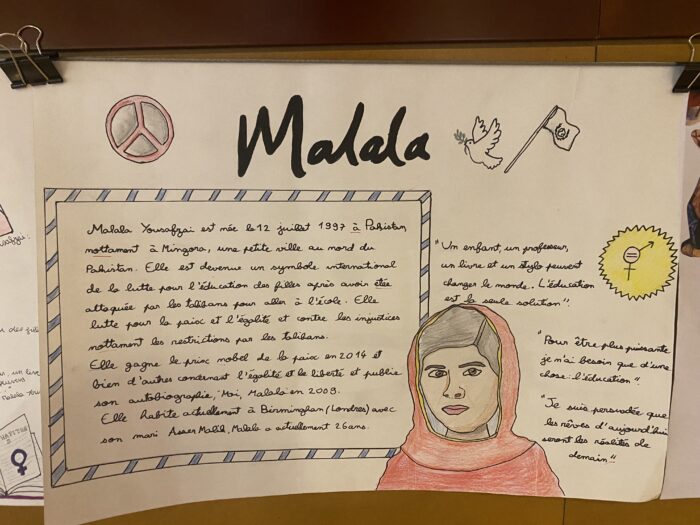 Malala
Malala Yousafzai est née le 12 juillet 1997 à Pakistan
nottament à Mingora, une petite ville au nord du
Pakistan. Elle est devenue un symbole international
de la lutte pour l'éducation des filles après avoir étée
attaquée par les talibans pour aller à l'école. Elle
lutte pour la paix et l'égalité et contre les injustices
nottament les restrictions par les talibans.
Elle gagne le prix nobel de la paix en 2014 et
bien d'autres concernant l'égalité et le liberté et publie
son autobiographie, Moi, Malala en 2009.
Elle habite actuellement à Birmingham (Londres) avec
son mari Asser Malik, Malala a actuellement 26 ans.
"Un enfant, un professeur,
un livre et un stylo peuvent
changer le monde. L'éducation
est la seule solution".
"Pour être plus puissante
je n'ai besoin que d'une
chose: l'éducation"
"Je suis persuadée que
les rêves d'aujourd'hui
seront les réalités de
demain"